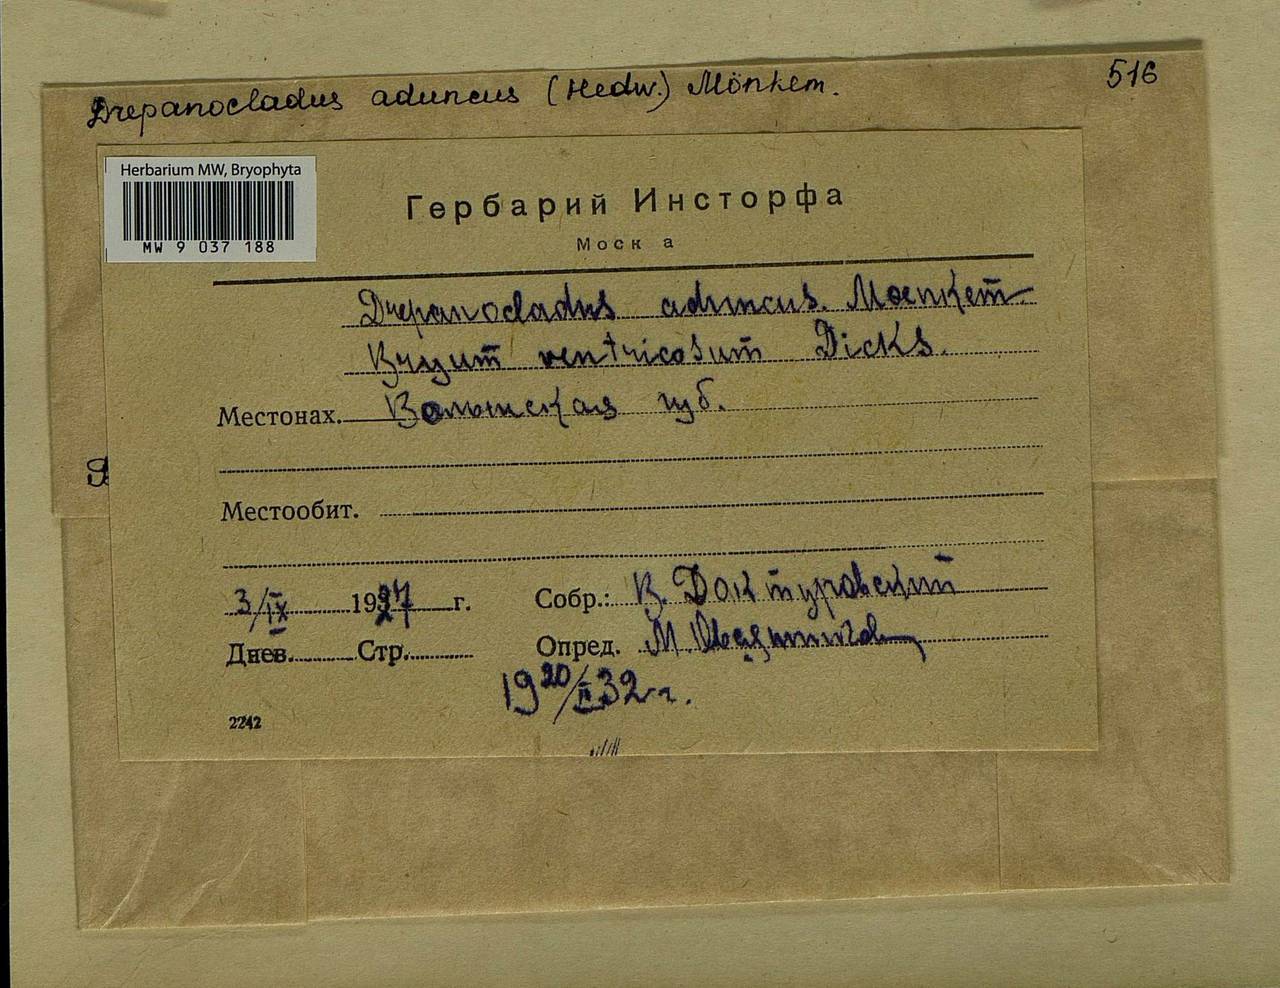 Drepanocladus aduncus (Hedw.) Mönkem.
516
Herbarium MW, Bryophyta
MW 9 037 188
Гербарий Инсторфа
Моск а
Drepanocladus aduncus. Moenkem.
Bryum ventricosum Dicks.
Местонах. Волынская губ.
Местообит.
3/IX 1927 г. Собр.: В. Доктуровский
Днев. Стр. Опред. М.
19 20/II 32 г.
2242